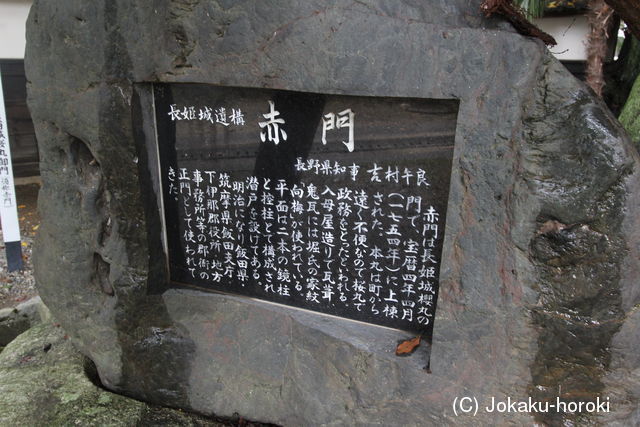 長姫城遺構
赤門
長野県知事 吉村午良
赤門は長姫城櫻丸の
門で、宝暦四年四月
(一七五四年)に上棟
された。本丸は町から
遠く不便なので桜丸で
政務をとったといわれる。
入母屋造りで瓦葺、
鬼瓦には堀氏の家紋
「向梅」が使われている。
平面は二本の鏡柱
と控柱とで構成され
潜戸を設けてある。
明治になり飯田県・
筑摩県飯田支庁・
下伊那郡役所・地方
事務所等の郡衙の
正門として使われて
きた。
(C) Jokaku-horoki